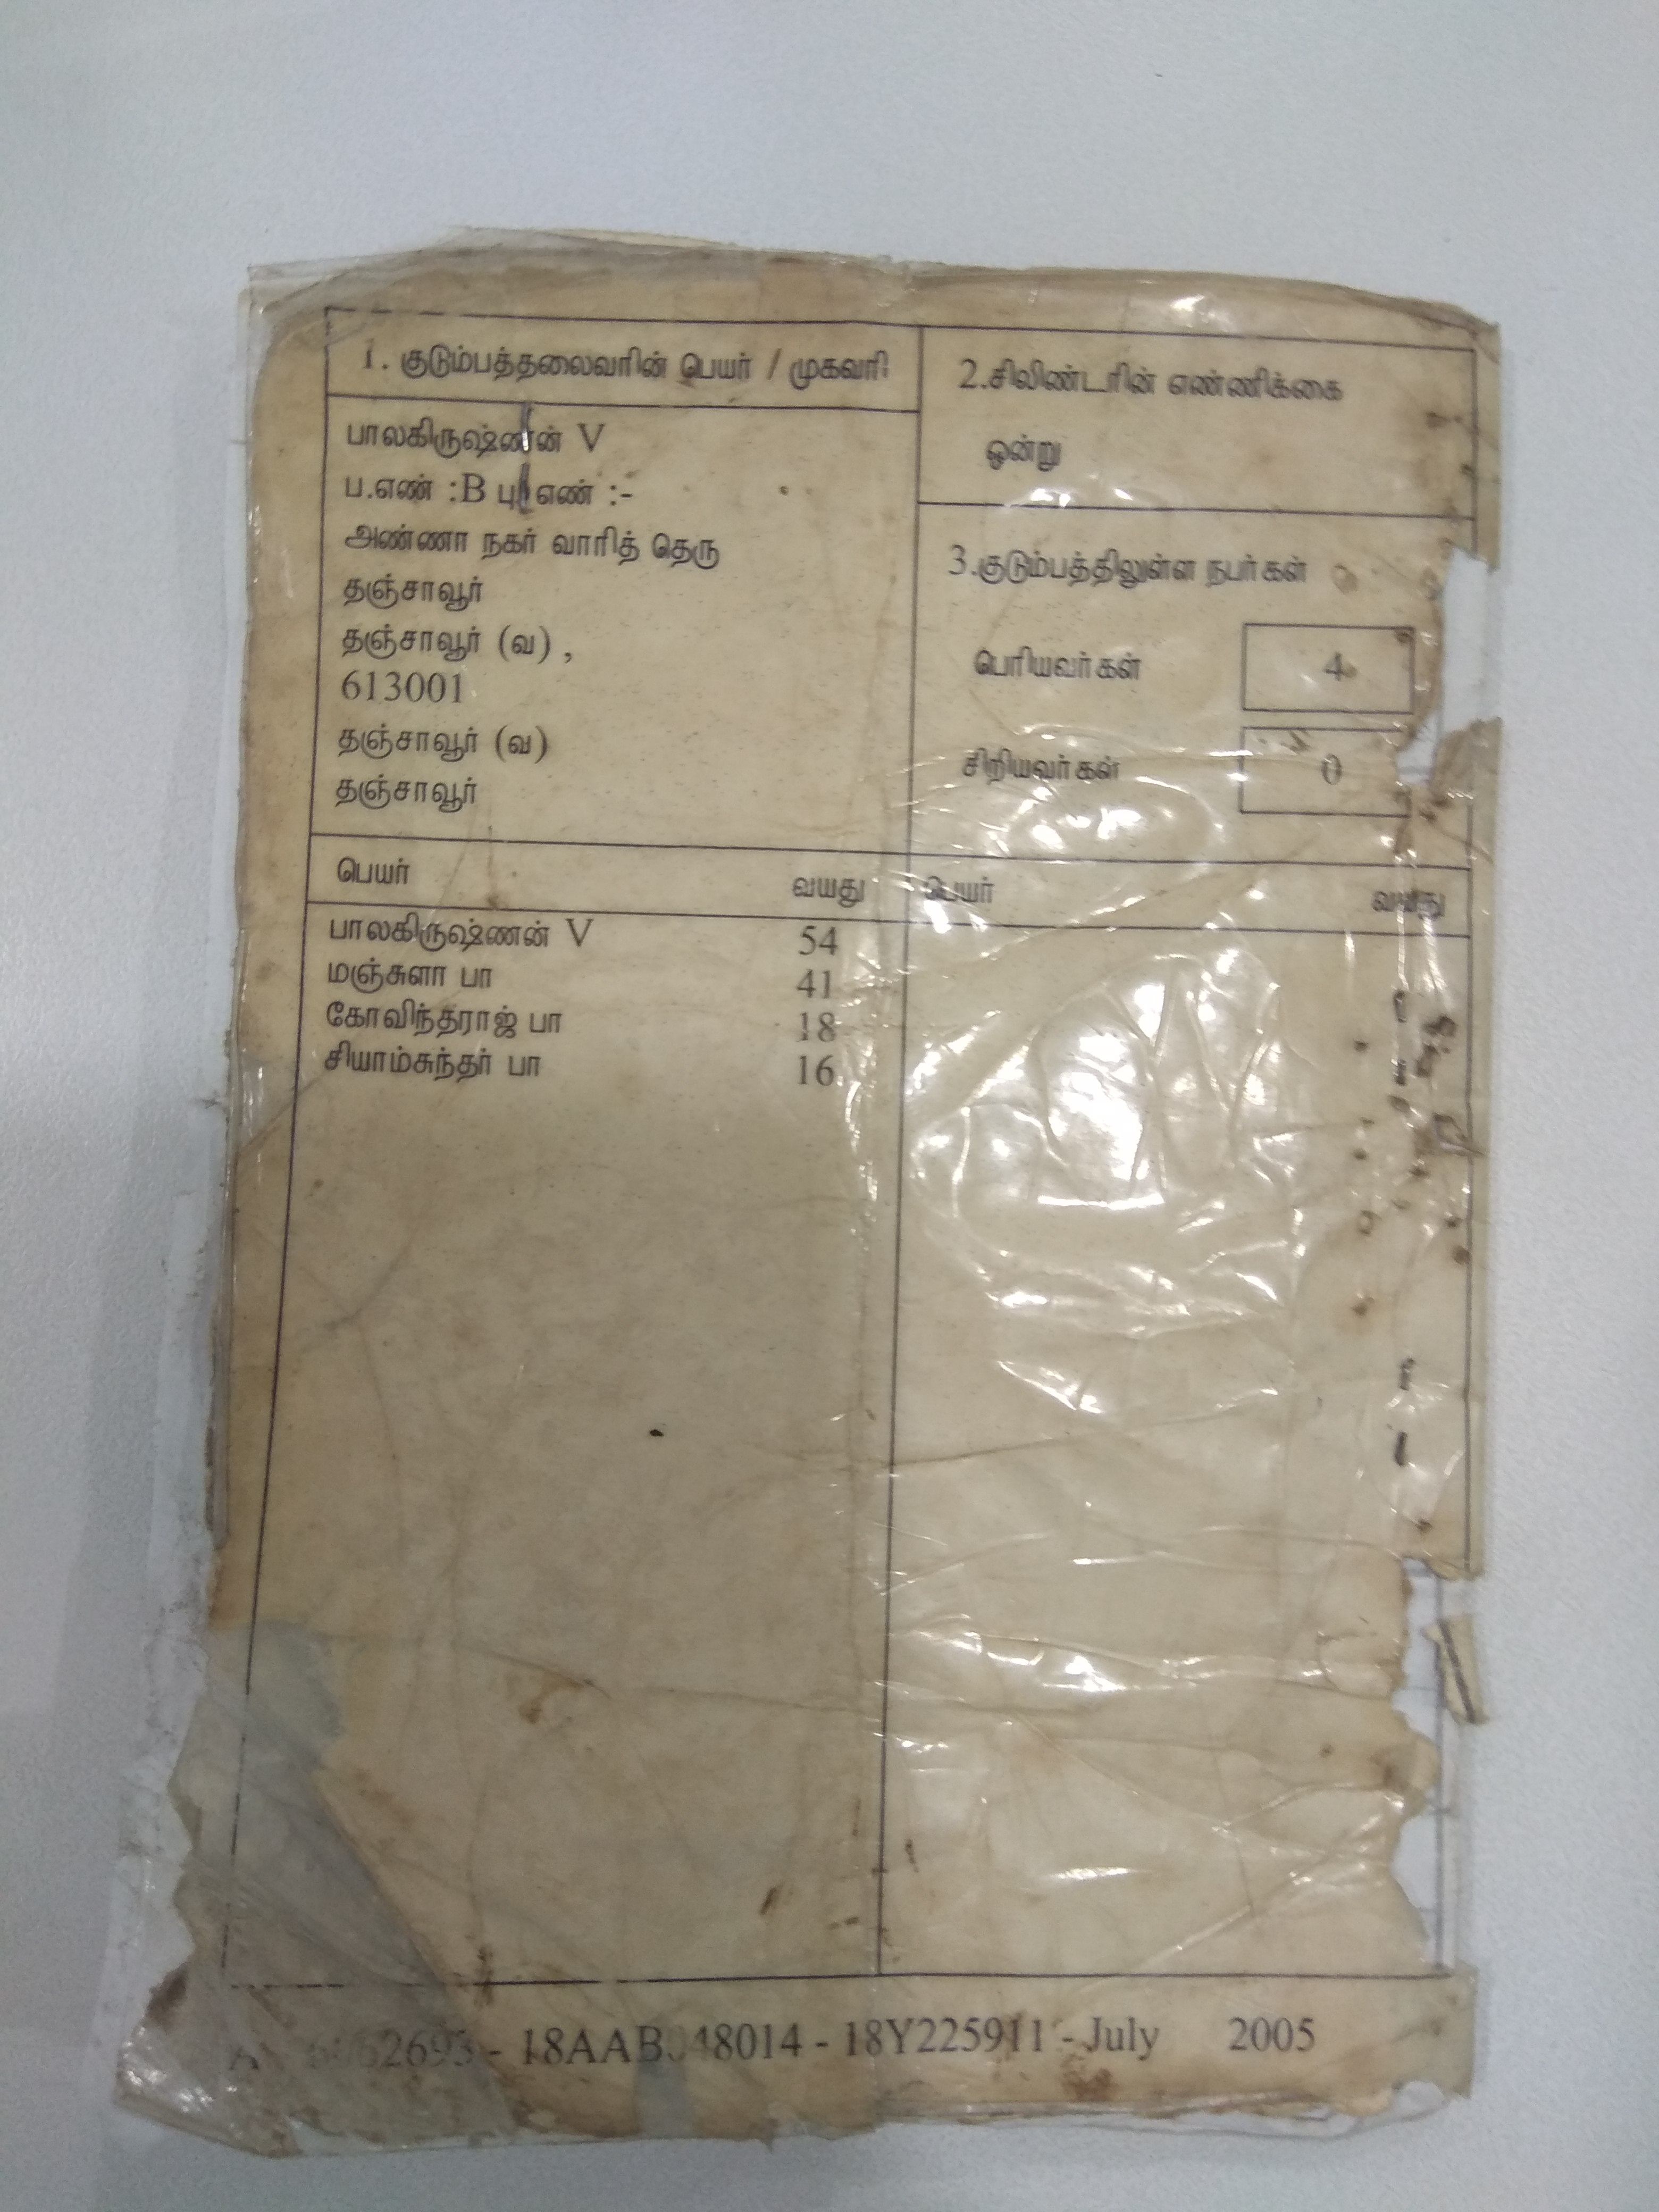 1. குடும்பத்தலைவரின் பெயர் / முகவரி
பாலகிருஷ்ணன் V
ப.எண் :B பு எண் :-
அண்ணா நகர் வாரித் தெரு
தஞ்சாவூர்
தஞ்சாவூர் (வ) ,
613001
தஞ்சாவூர் (வ)
தஞ்சாவூர்
2.சிலிண்டரின் எண்ணிக்கை
ஒன்று
3.குடும்பத்திலுள்ள நபர்கள்
பெரியவர்கள் 4
சிறியவர்கள் 0
பெயர் வயது பெயர் வயது
பாலகிருஷ்ணன் V 54
மஞ்சுளா பா 41
கோவிந்தராஜ் பா 18
சியாம்சுந்தர் பா 16
- 18Y225911 - July 2005